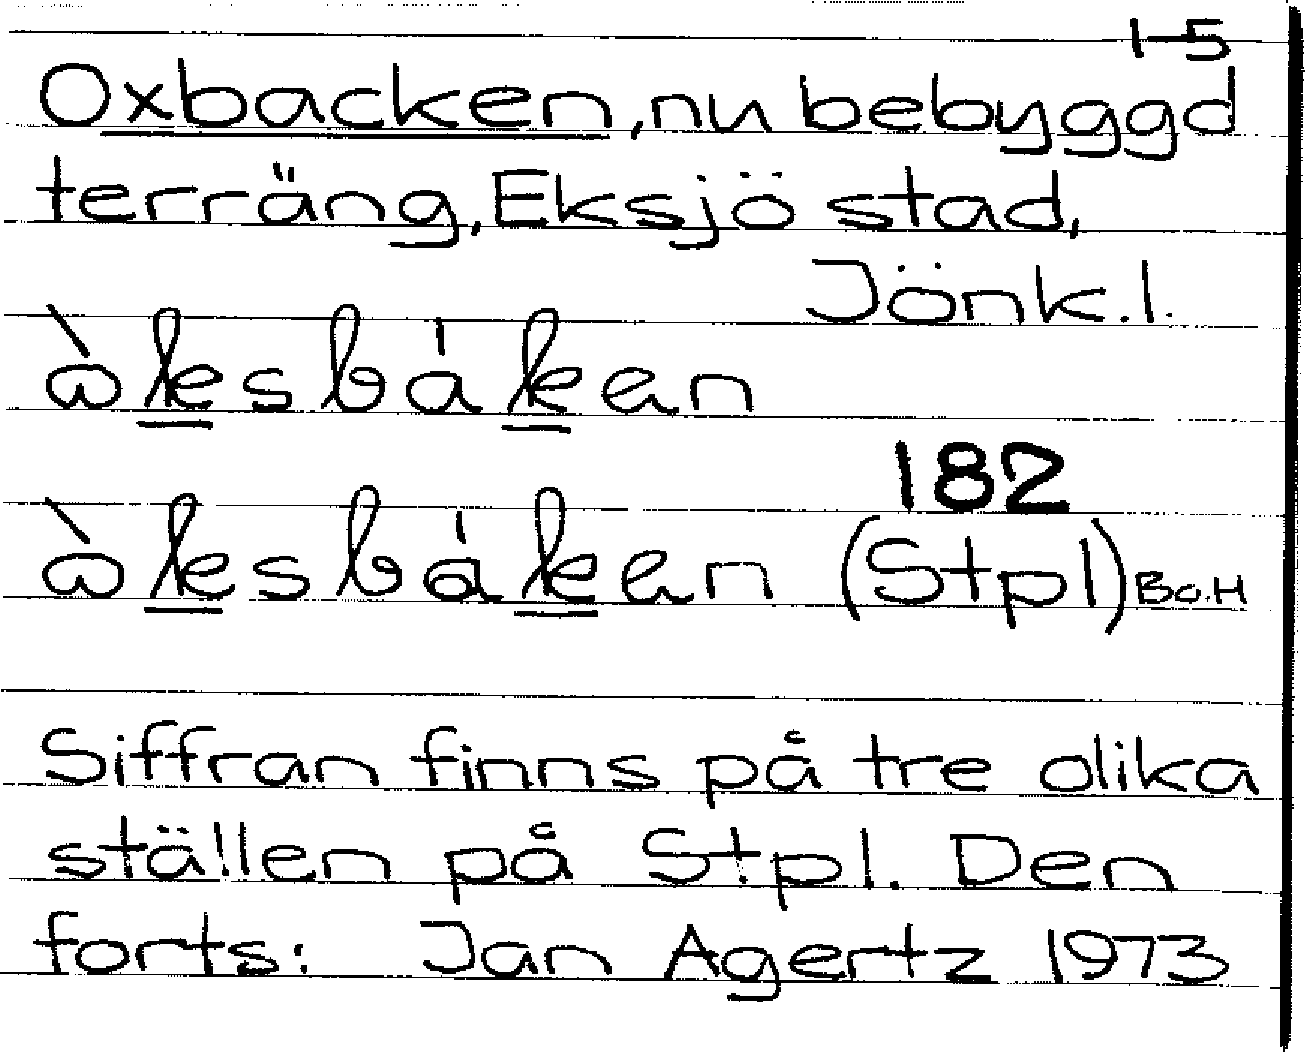 1-5
Oxbacken, nu bebyggd
terräng, Eksjö stad,
Jönk.l.
ὼksbák̳en
182
ὼksbák̳en (Stpl) Bo.H
Siffran finns på tre olika
ställen på Stpl. Den
forts: Jan Agertz 1973